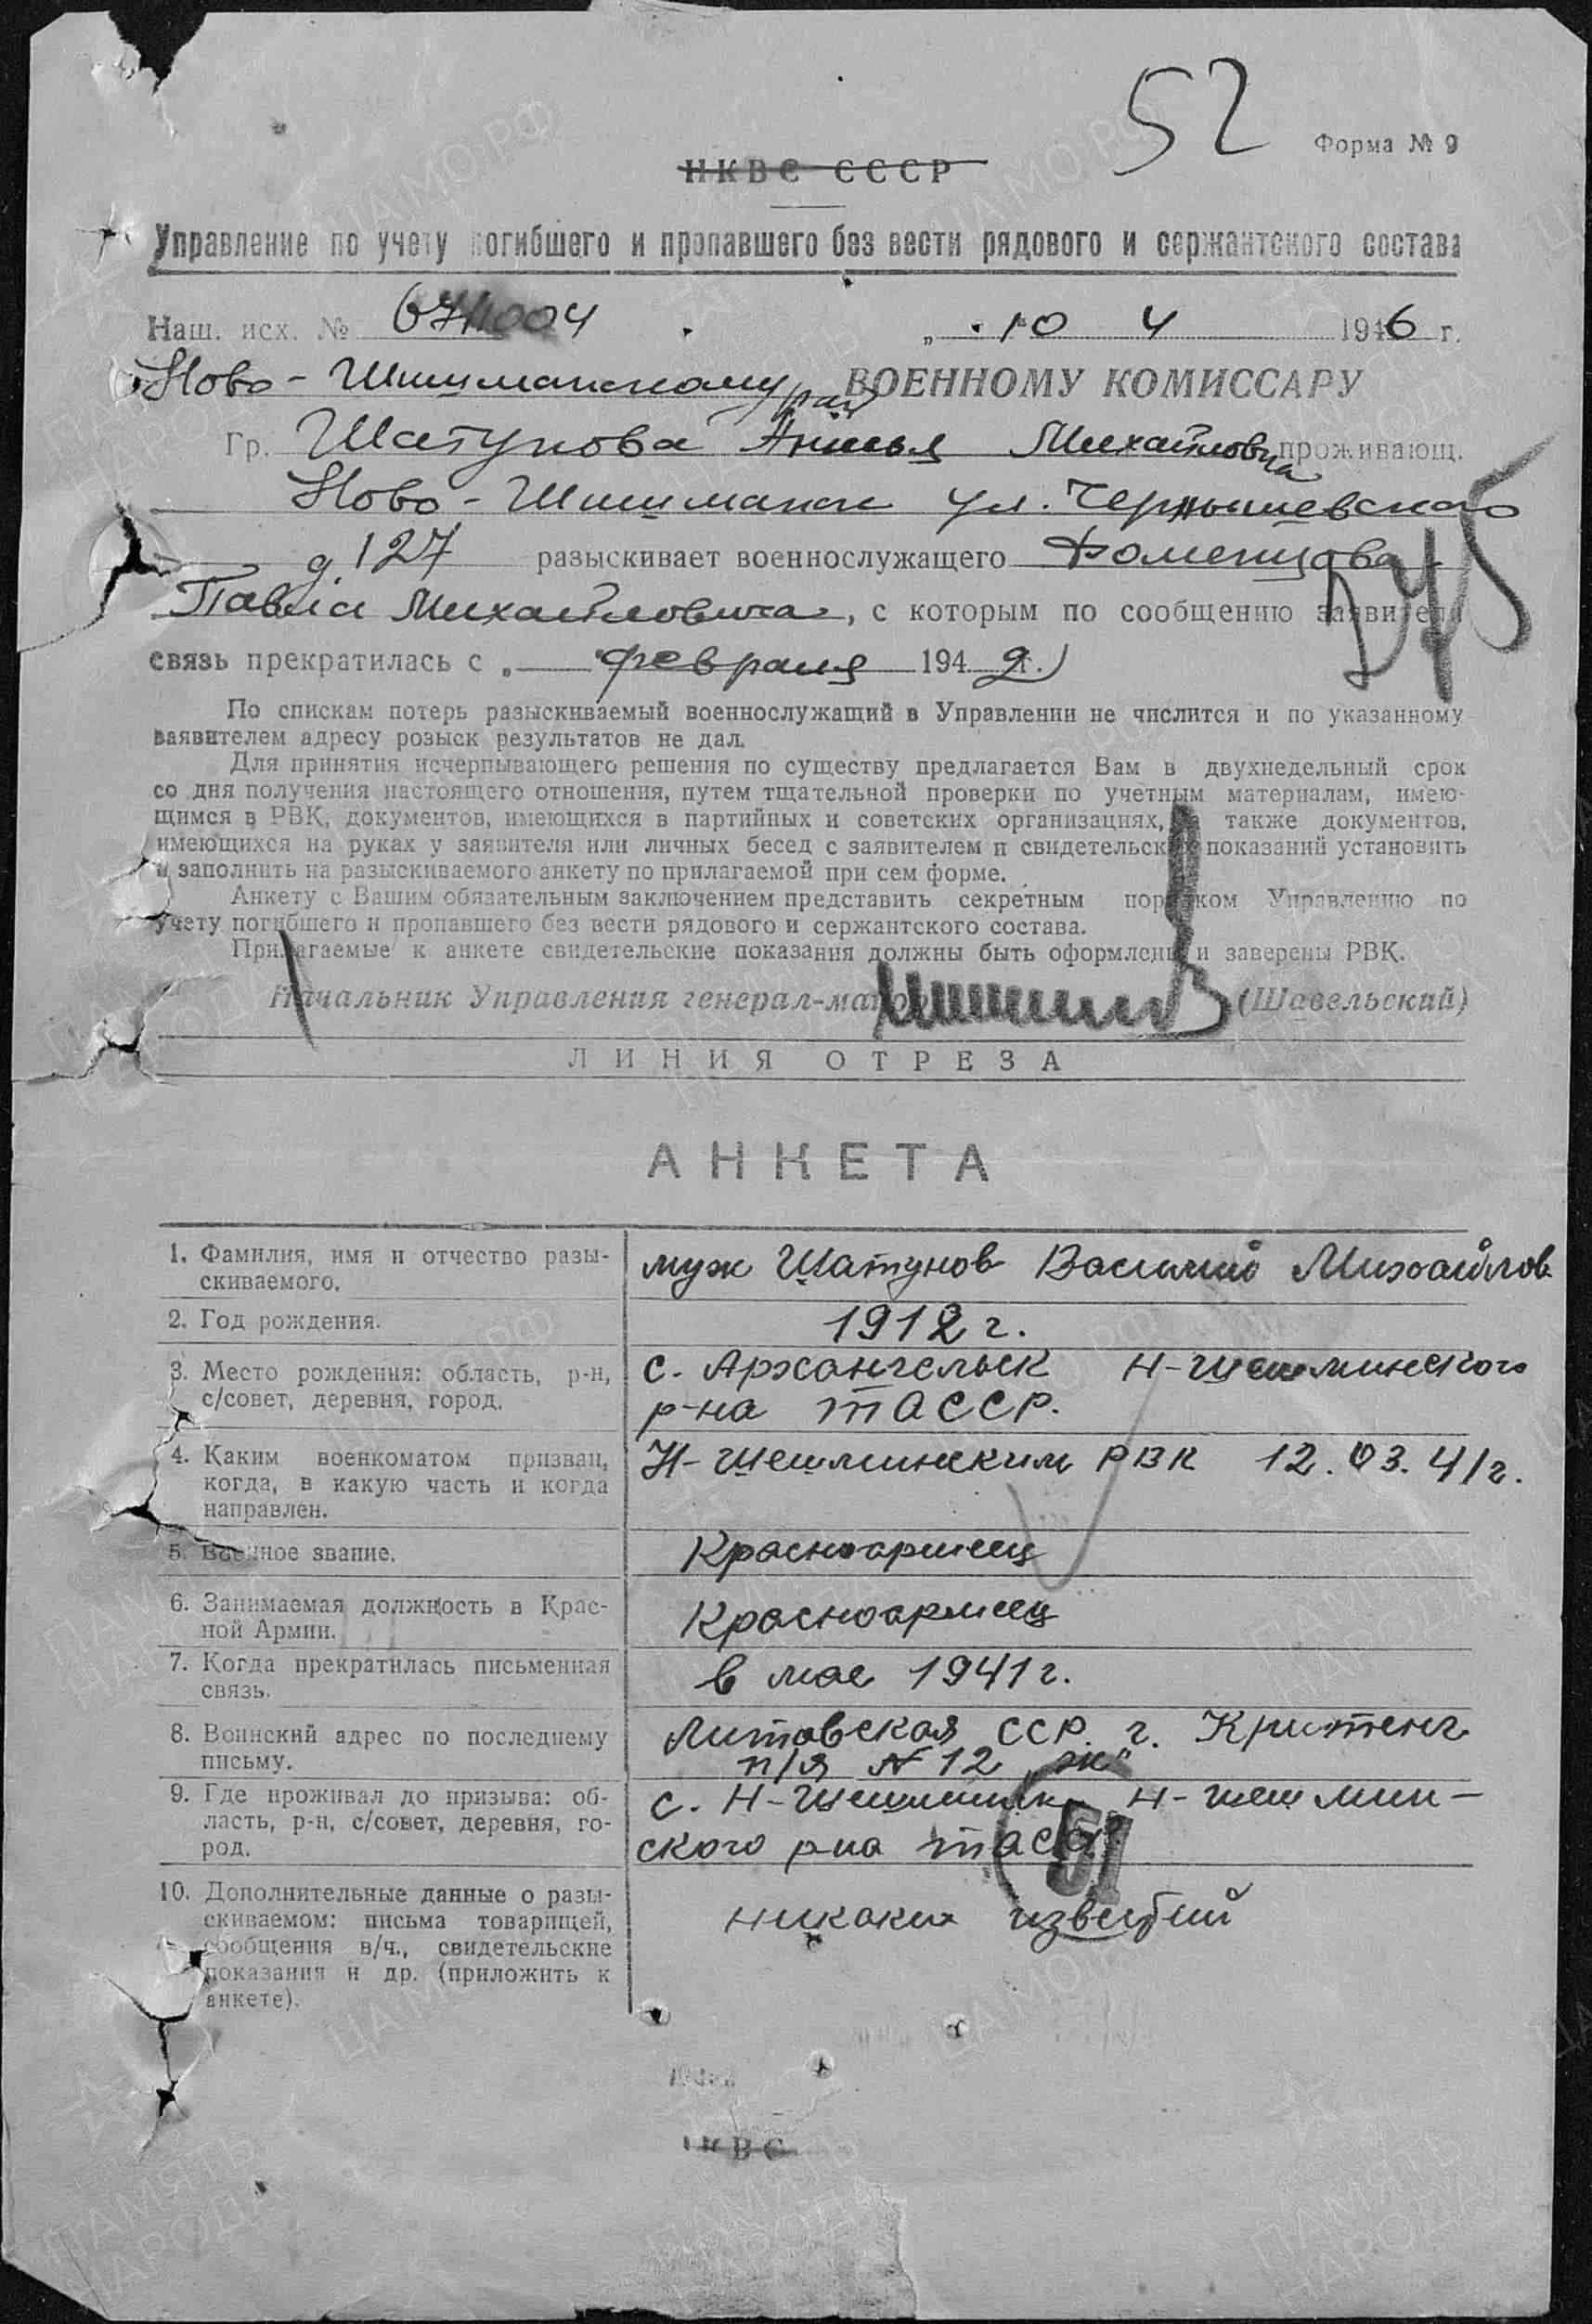 52
Форма № 9
НКВС СССР
Управление по учету погибшего и пропавшего без вести рядового и сержантского состава
Наш. исх. № „ 10 4 1946 г.
Ново-Шишманскому рай ВОЕННОМУ КОМИССАРУ
Гр. Шатунова Михайловна проживающ.
Ново-Шишманск ул. Чернышевского
д 127 разыскивает военнослужащего
Павла Михайловича, с которым по сообщению заявителя
связь прекратилась с „ февраля 1942 г.
По спискам потерь разыскиваемый военнослужащий в Управлении не числится и по указанному
заявителем адресу розыск результатов не дал.
Для принятия исчерпывающего решения по существу предлагается Вам в двухнедельный срок
со дня получения настоящего отношения, путем тщательной проверки по учетным материалам, имею-
щимся в РВК, документов, имеющихся в партийных и советских организациях, а также документов,
имеющихся на руках у заявителя или личных бесед с заявителем и свидетельских показаний установить
и заполнить на разыскиваемого анкету по прилагаемой при сем форме.
Анкету с Вашим обязательным заключением представить секретным порядком Управлению по
учету погибшего и пропавшего без вести рядового и сержантского состава.
Прилагаемые к анкете свидетельские показания должны быть оформлены и заверены РВК.
Начальник Управления генерал-майор (Шавельский)
ЛИНИЯ ОТРЕЗА
АНКЕТА
1. Фамилия, имя и отчество разы-
скиваемого.
муж Шатунов Василий Михайлов
2. Год рождения.
1912 г.
3. Место рождения: область, р-н,
с/совет, деревня, город.
с. Архангельск Н-Шешминского
р-на ТАССР.
4. Каким военкоматом призван,
когда, в какую часть и когда
направлен.
Н-Шешминским РВК 12.03.41г.
5. Военное звание.
Красноармеец
6. Занимаемая должность в Крас-
ной Армии.
Красноармеец
7. Когда прекратилась письменная
связь.
в мае 1941 г.
8. Воинский адрес по последнему
письму.
Литовская ССР. г. Критенг
п/я № 12 „ж"
9. Где проживал до призыва: об-
ласть, р-н, с/совет, деревня, го-
род.
с. Н-Шешминск Н-Шешмин-
ского р-на ТАССР
51
10. Дополнительные данные о разы-
скиваемом: письма товарищей,
сообщения в/ч., свидетельские
показания и др. (приложить к
анкете).
никаких известий
НКВС